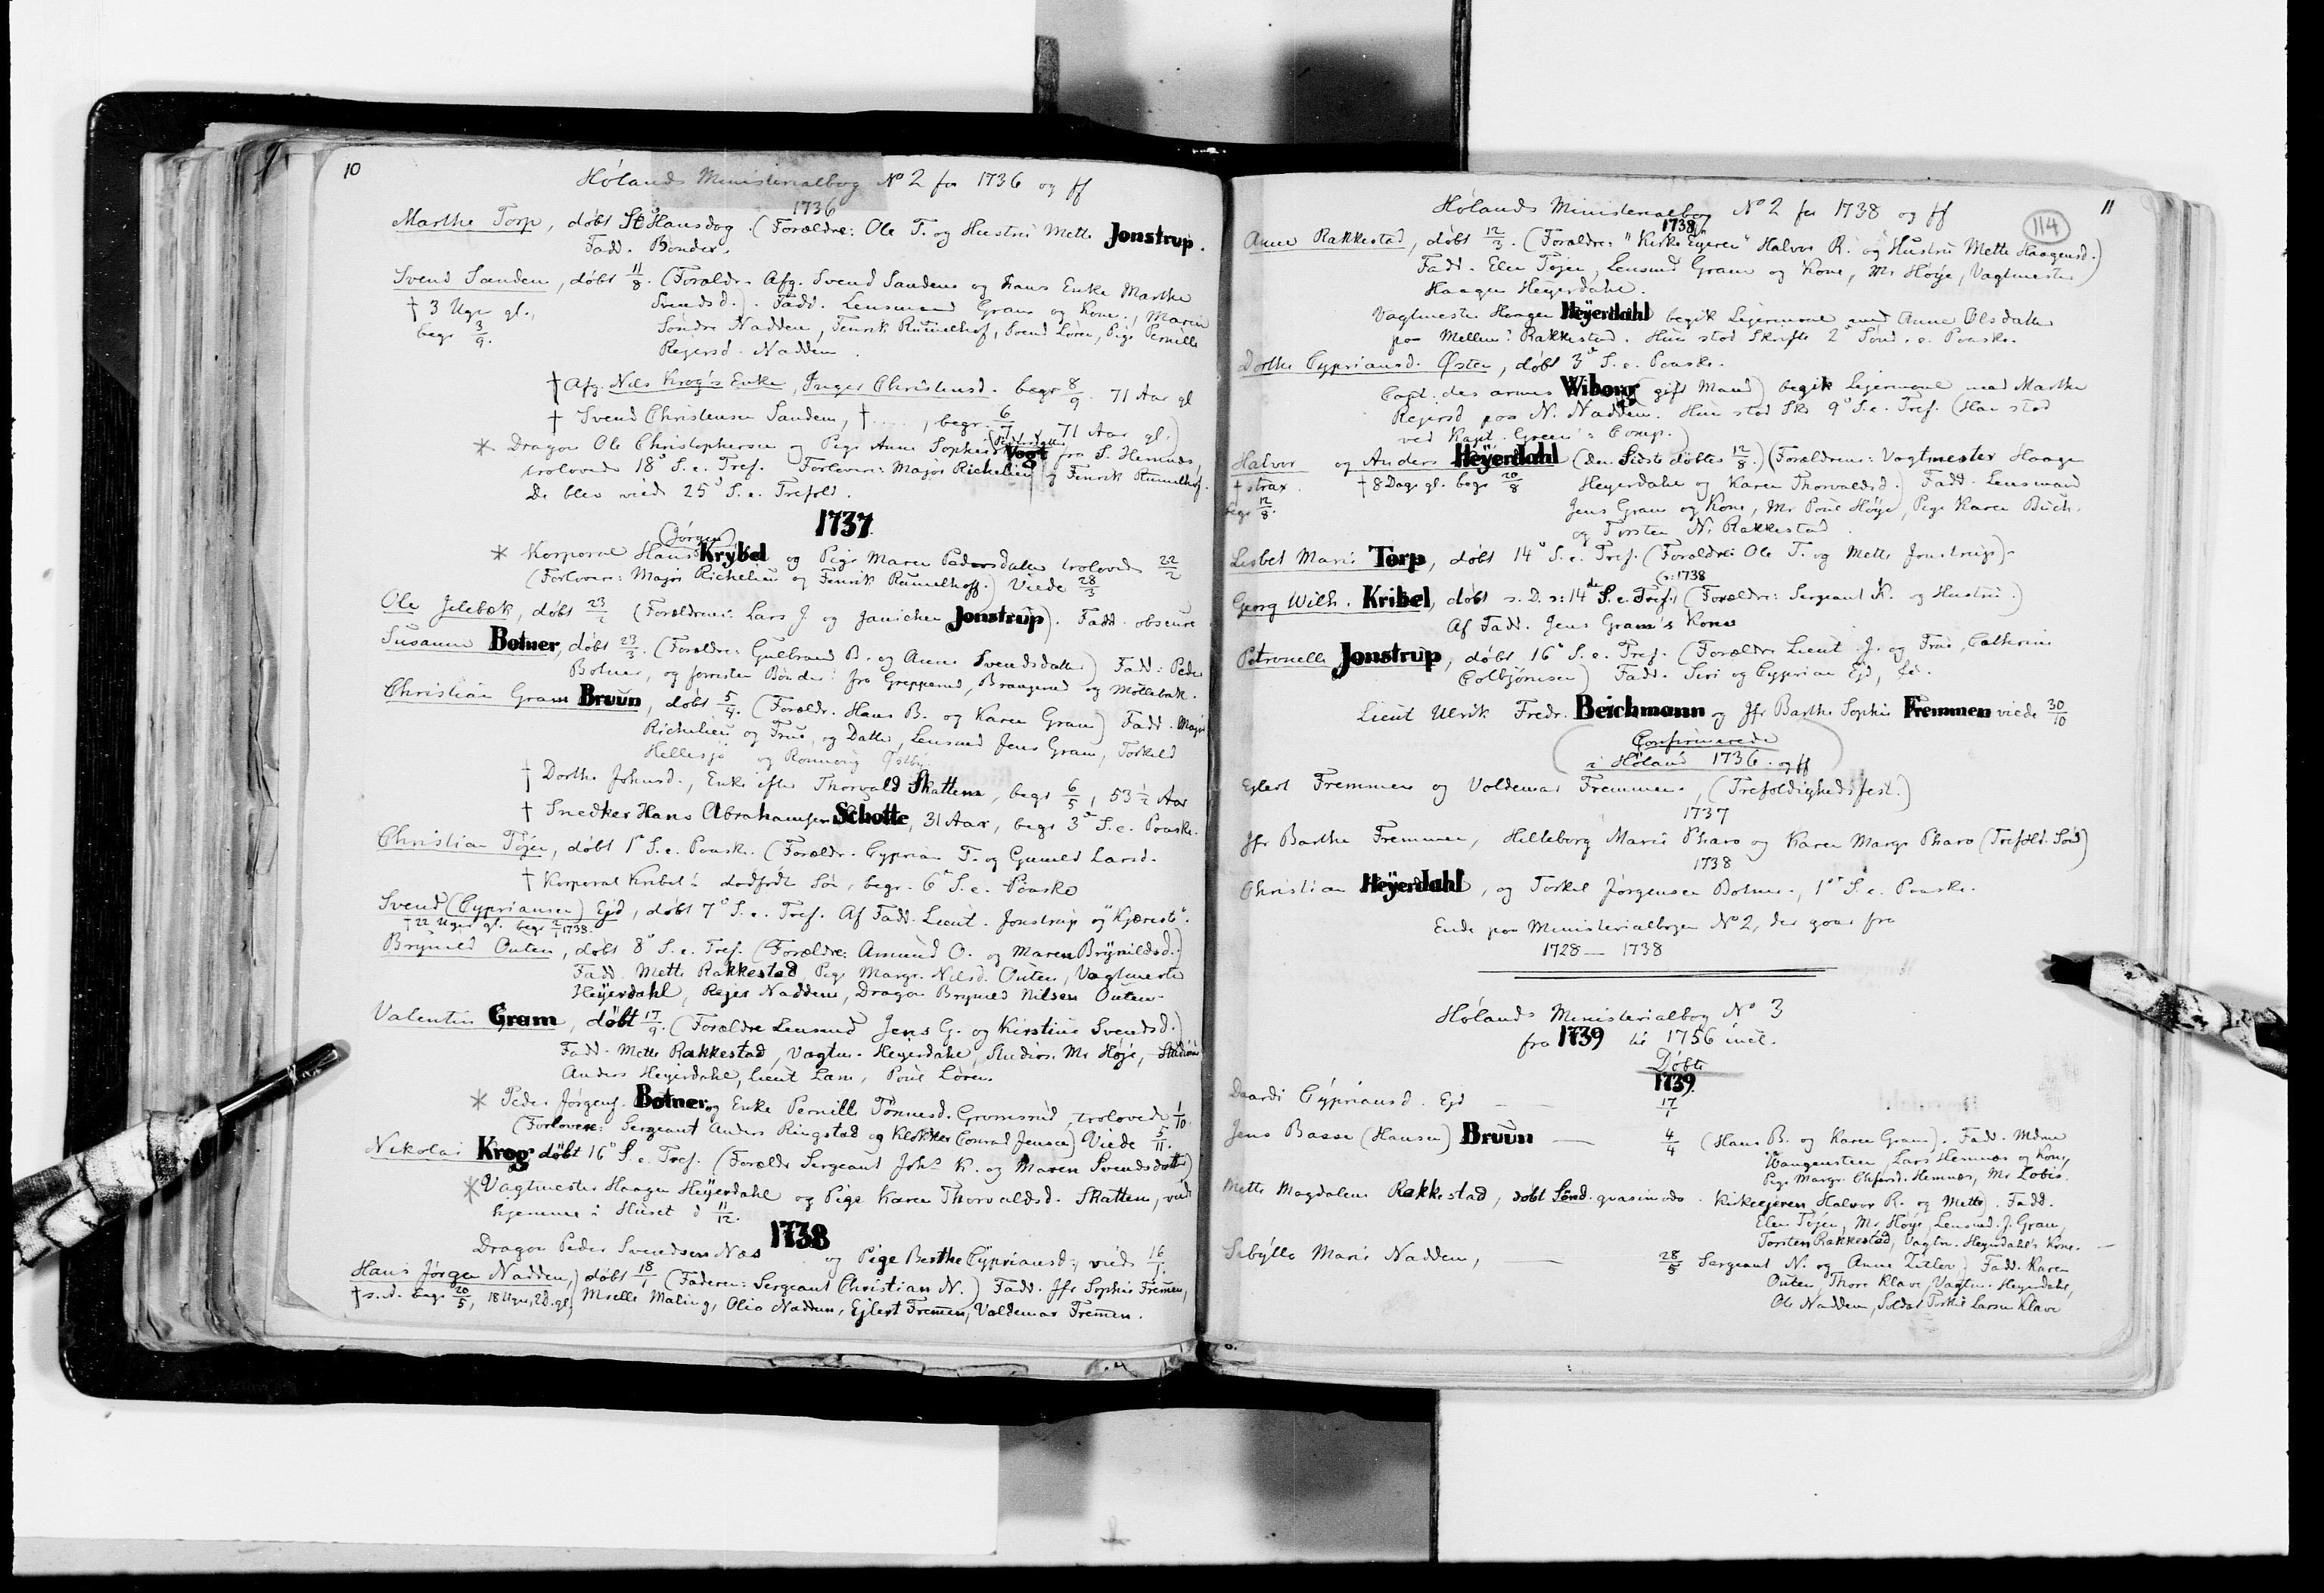 10
Hölands Ministerialbog No 2 for 1736 og ff
1736
Marthe Torp, döbt St Hansdag. (Forældre: Ole T. og Hustru Mette Jonstrup.
Fadd. Bönder.
Svend Sanden, döbt 11/8. (Forældr. Afg. Svend Sandens og hans Enke Marthe
† 3 Uger gl., Svendsd.). Fadd. Lensmand Gram og Kone, Maren
begr 3/9. Söndre Nadden, Fenrik Rümelhof, Svend Lören, Pige Pernille
Rejersd. Nadden.
† Afg. Nils Krog's Enke, Inger Christensd. begr 8/9 71 Aar gl
† Svend Christensen Sanden, † ...., begr. 6/7, 71 Aar gl.)
* Dragon Ole Christophersen og Pige Anne Sophie (Pedersdatter) Vogt fra S. Hemnes,
trolovede 18° S. e. Tref. Forlovere: Major Richelieu og Fenrik Rümelhof.
De blev viede 25° S. e. Trefold.
1737
(Jörgen)
* Korporal Hans Krybel og Pige Maren Pedersdatter trolovede 22/2
(Forlovere: Major Richelieu og Fenrik Rümelhoff.) Viede 28/3
Ole Jelebæk, döbt 23/2 (Forældrene: Lars J. og Janichen Jonstrup). Fadd. obscure
Susanne Botner, döbt 23/3. (Forældre: Gulbrand B. og Anne Svendsdatter) Fadd: Peder
Botner, og forresten Bönder: fra Grepperud, Brangerud og Möllebæk.
Christian Gram Bruun, döbt 5/4. (Forældr. Hans B. og Karen Gram) Fadd. Major
Richelieu og Frue, og Datter, Lensmd Jens Gram, Torkild
Hellesjö og Rönnaug Østby.
† Dorthe Johnsd., Enke efter Thorvald Skatten, begr 6/5, 53 1/2 Aar
† Snedker Hans Abrahamsen Schotte, 31 Aar, begr 3° S. e. Paaske.
Christian Töjen, döbt 1° S. e. Paask. (Forældr. Cyprian T. og Gunild Larsd.
† Korporal Kribel's dödfødt Sön, begr. 6° S. e. Paaske
Svend (Cypriansen) Ejd, döbt 7° S. e. Tref. Af Fadd. Lieut. Jonstrup og "Kjæreste".
† 22 Uger gl. begr 2/1 1738.
Brynild Outen, döbt 8° S. e. Tref. (Forældre: Amund O. og Maren Brynildsd.)
Fadd. Mette Rakkestad, Pige Margr. Nilsd. Outen, Vagtmester
Heÿerdahl, Rejer Nadden, Dragon Brynild Nilsen Outen.
Valentin Gram, döbt 17/9. (Forældre Lensmd Jens G. og Kirstine Svendsd.)
Fadd. Mette Rakkestad, Vagtm. Heyerdahl, Studios. Mr Höje,
Anders Heyerdahl, Lieut Lam, Poul Lören.
* Peder Jörgens. Botner og Enke Pernille Tönnesd. Gromsrud, trolovede 1/10.
(Forlovere: Sergeant Anders Ringstad og Klokker Conrad Jensen) Viede 5/11.
Nikolai Krog döbt 16° S. e. Tref. (Forældr Sergeant Johs K. og Maren Svendsdatter)
* Vagtmester Haagen Heÿerdahl og Pige Karen Thorvaldsd. Skatten, viede
hjemme i Huset d 11/12.
1738
Dragon Peder Svendsen Næs og Pige Berthe Cÿpriansd., viede 16/1.
Hans Jörgen Nadden, döbt 18/1 (Faderen: Sergeant Christian N.) Fadd. Jfr Sophie Fremen,
† s.d. begr 20/5, 18 Uger, 2 D. gl, Mselle Maling, Olia Nadden, Ejlert Fremen, Valdemar Fremen.
11
114
Hölands Ministerialbog No 2 for 1738 og ff
1738
Anne Rakkestad, döbt 12/3. (Forældre: "Kirke Ejeren" Halvor R. og Hustru Mette Haagensd.)
Fadd. Elen Töjen, Lensmd Gram og Kone, Mr Höye, Vagtmester
Haagen Heyerdahl.
Vagtmester Haagen Heÿerdahl begik Lejermaal med Anne Olsdatter
paa Mellem Rakkestad. Hun stod Skrifte 2° Sönd. e. Paaske.
Dorthe Cypriansd. Østen, döbt 3° S. e. Paaske.
Capt. des armes Wiborg gift Mand) begik Lejermaal med Marthe
Rejersd paa N. Nadden. Hun stod Skr 9° S. e. Tref. (Han stod
ved Kapt. Green's Comp.)
Halvor og Anders Heÿerdahl (den Sidste döbtes 12/8.) (Forældrene: Vagtmester Haagen
† strax. † 8 Dage gl. begr 20/8 Heyerdahl og Karen Thorvaldsd.) Fadd. Lensmand
begr 12/8. Jens Gram og Kone, Mr Poul Höye, Pige Karen Büch.
og Torsten N. Rakkestad.
Lisbet Marie Torp, döbt 14° S. e. Tref. (Forældre: Ole T. og Mette Jonstrup).
(ɔ: 1738
Georg Wilh. Kribel, döbt s. D. ɔ: 14de S. e. Tref. (Forældre: Sergeant K. og Hustru.)
Af Fadd. Jens Gram's Kone
Petronelle Jonstrup, döbt 16° S. e. Tref. (Forældre Lieut. J. og Frue, Cathrine
Colbjörnsen) Fadd. Siri og Cyprian Ejd, &.
Lieut Ulrik Fredr. Beichmann og Jfr Barthe Sophie Fremmen viede 30/10
Confirmerede
i Höland 1736. og ff
Ejlert Fremmen og Voldemar Fremmen, (Trefoldighedsfest.)
1737
Jfr Barthe Fremmen, Hilleborg Marie Pharo og Karen Margr Pharo (Trefold. Sön)
1738
Christian Heÿerdahl, og Torkel Jörgensen Botner, 1ste S. e. Paaske.
Ende paa Ministerialbogen No 2, der gaar fra
1728 — 1738
Hölands Ministerialbog No 3
fra 1739 til 1756 incl.
Döbte
1739.
Daardi Cÿpriansd. Ejd — — 17/1
Jens Basse (Hansen) Bruun — 4/4 (Hans B. og Karen Gram). Fadd. Mdme
Wangensteen, Lars Hemnæs og Kone,
Pige Margr. Chrsd. Hemnæs, Mr Lobis.
Mette Magdalene Rakkestad, döbt Sönd. quasimodo. Kirkeejeren Halvor R. og Mette). Fadd.
Elen Töjen, Mr Höye, Lensmd. J. Gram,
Torsten Rakkestad, Vagtm. Heyerdahl's Kone. —
Sibÿlla Marie Nadden, — 28/5 Sergeant N. og Anne Zitler) Fadd. Karen
Outen, Thore Klave, Vagtm. Heyerdahl,
Ole Nadden, Soldat Torkil Larsen Klave